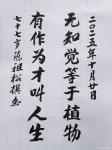 二〇二五年十月廿日
无知觉等于植物
有作为才叫人生
七十七岁陈祖松撰书